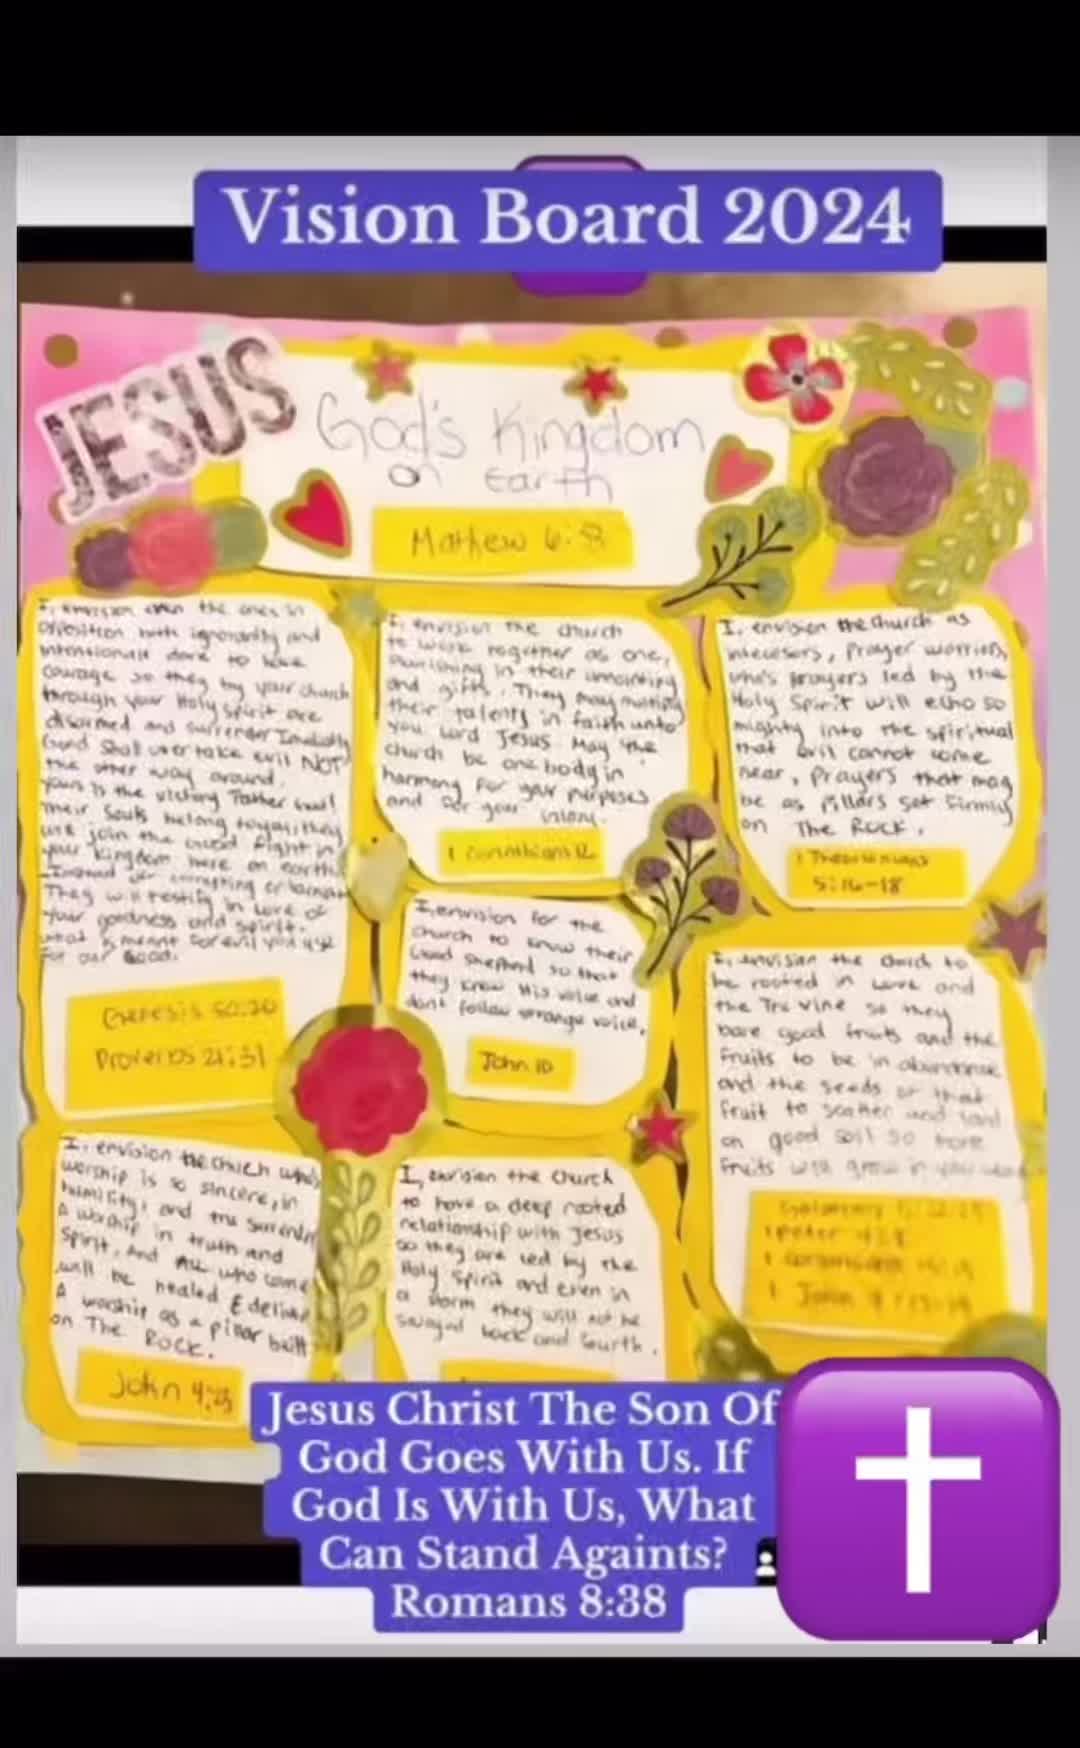 Vision Board 2024
JESUS
God's Kingdom
on Earth
Mathew 6:
I, envision even the ones in
opposition both ignorantly and
intentionali dare to have
courage so they by your church
through your Holy Spirit are
disarmed and surrender
Good Shall over take evil NOT
the other way around.
Yours is the victory Father
Their Souls belong to you, they
will join the good fight in
your Kingdom here on earth.
Instead of
They will testify in Love of
your goodness and spirit.
what is meant for evil you use
for our Good.
Genesis 50:20
Proverbs 21:31
I, envision the church
to work together as one,
flurishing in their annointing
and gifts. They may multiply
their talents in faith unto
you Lord Jesus May the
church be one body in
harmony for your purposes
and for your Glory.
1 Corinthians 12
I. envision the church as
intecesors, Prayer worriors,
who's prayers led by the
Holy Spirit will echo so
mighty into the spiritual
that evil cannot come
near, Prayers that may
be as Pillars set firmly
on The ROCK.
1 Thessalonians
5:16-18
I, envision for the
church to know their
Good Shepherd so that
they know His voice and
dont follow strange voice.
John 10
I, envision the church to
be rooted in Love and
the Tru Vine so they
bare good fruits and the
fruits to be in abundance
and the seeds of that
fruit to scatter and land
on good soil so more
fruits will grow in
1 Peter 4:8
1 John 4:
I. envision the church who's
worship is so sincere, in
humility, and tru surrender
A worship in truth and
Spirit. And ALL who come
will be healed &
A worship as a pillar built
on The ROCK.
John 4:23
I, envision the Church
to have a deep rooted
relationship with Jesus
so they are led by the
Holy Spirit and even in
a storm they will not be
swayed back and fourth.
Jesus Christ The Son Of
God Goes With Us. If
God Is With Us, What
Can Stand Againts?
Romans 8:38